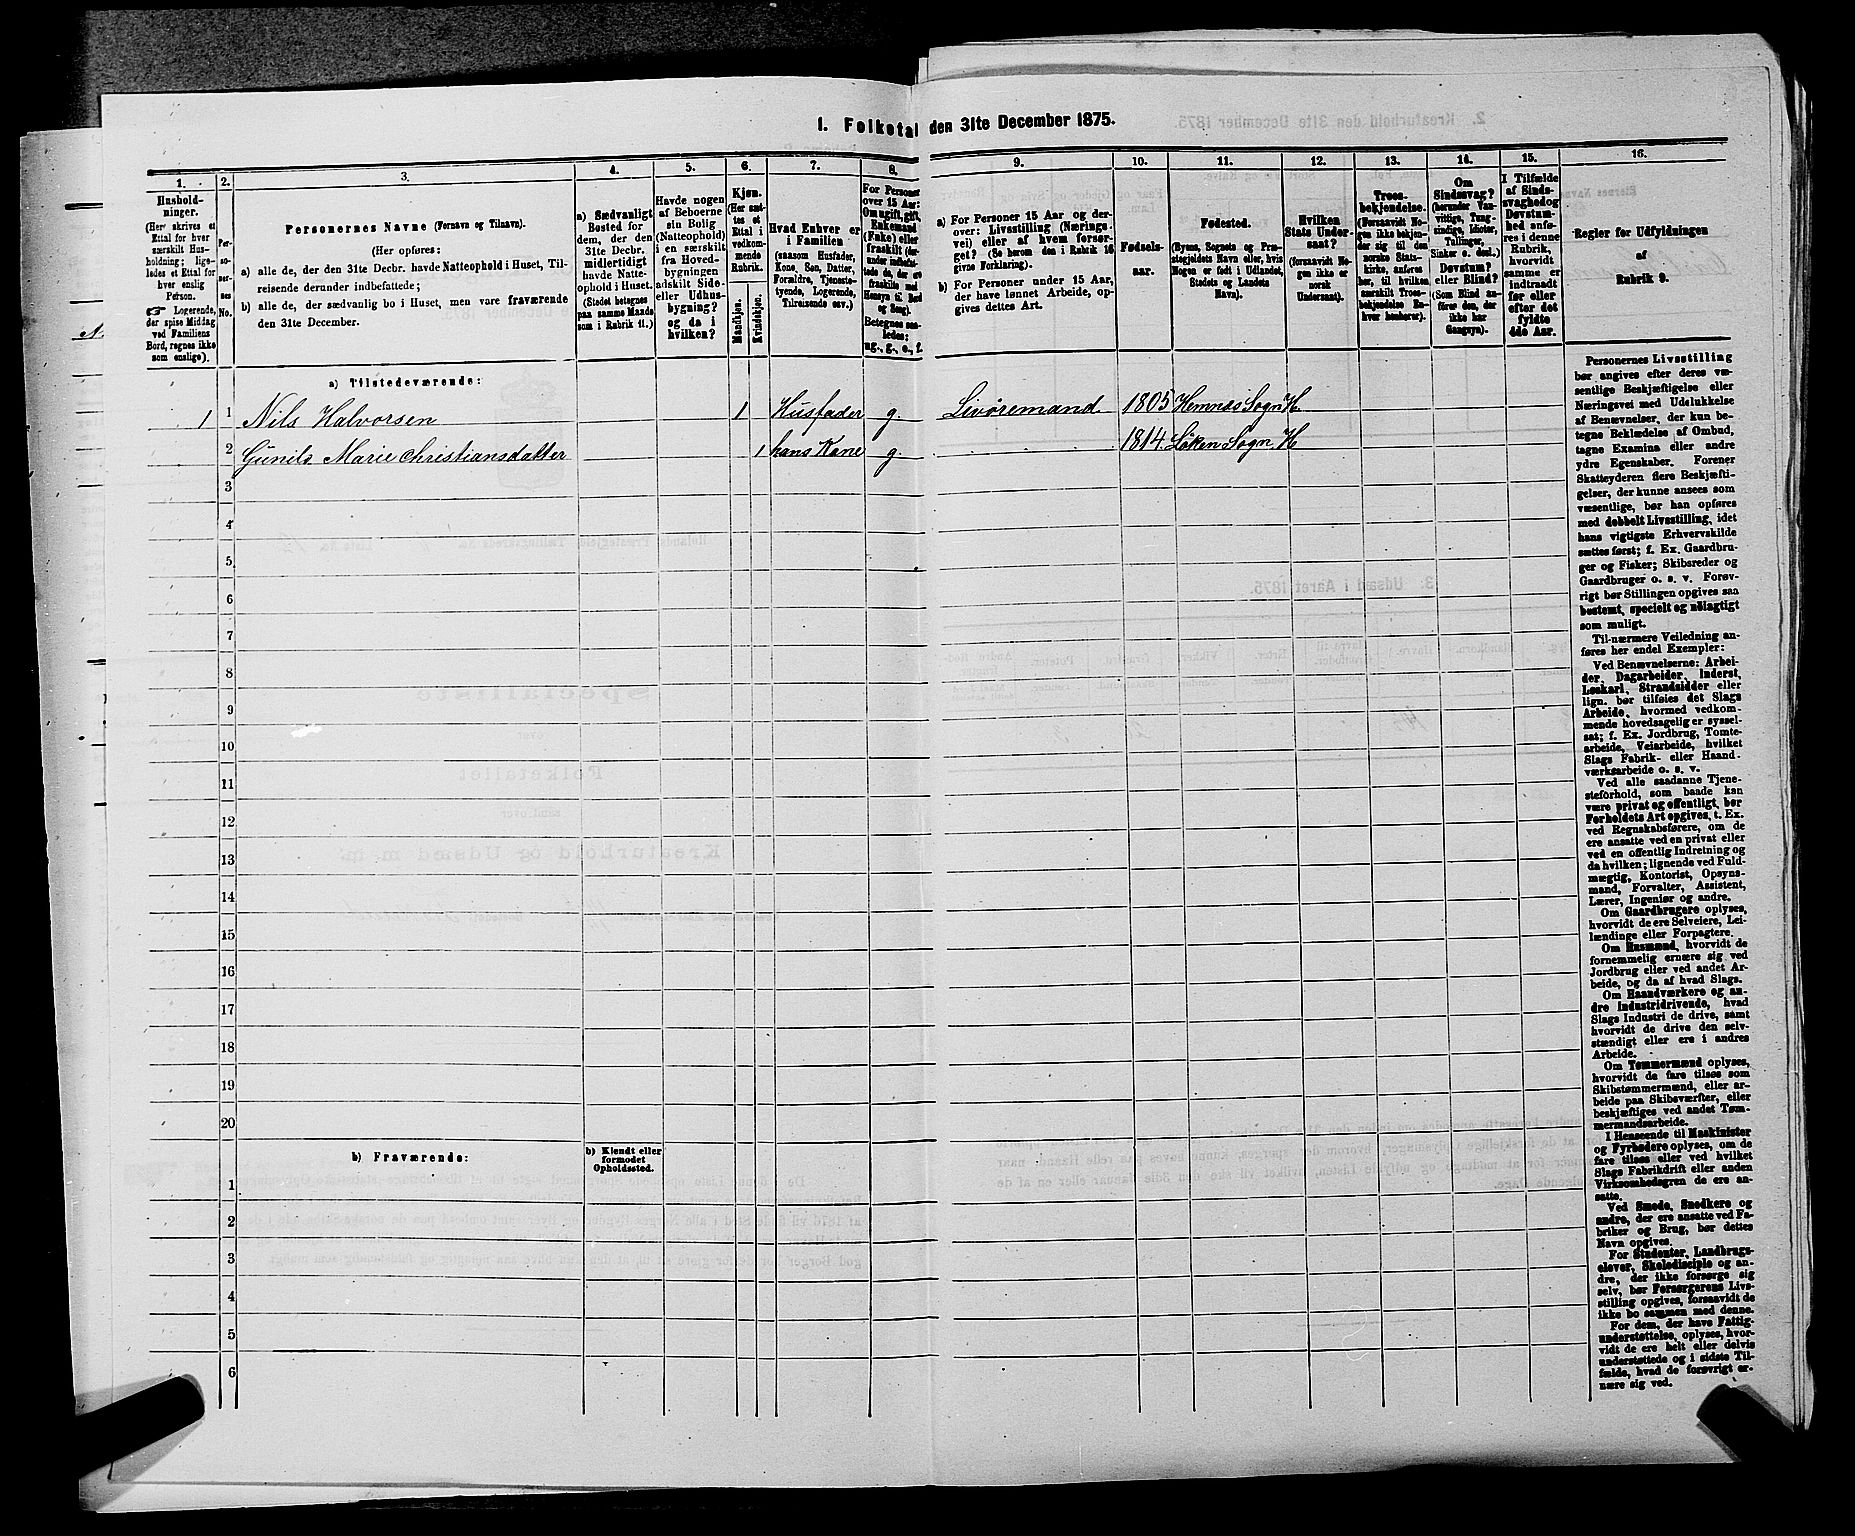 1. Folketal den 31te December 1875.
1. 2. 3. 4. 5. 6. 7. 8. 9. 10. 11. 12. 13. 14. 15. 16.
Husholdninger.
(Her skrives et
Ettal for hver
særskilt Husholdning; ligeledes et Ettal for
hver enslig
Person.
☞ Logerende,
der spise Middag
ved Familiens
Bord, regnes ikke
som enslige).
Personernes
No.
Personernes Navne (Fornavn og Tilnavn).
(Her opføres:
a) alle de, der den 31te Decbr. havde Natteophold i Huset, Tilreisende derunder indbefattede;
b) alle de, der sædvanlig bo i Huset, men vare fraværende
den 31te December.
a) Sædvanligt
Bosted for
dem, der den
31te Decbr.
midlertidigt
havde Natteophold i Huset.
(Stedet betegnes
paa samme Maade
som i Rubrik 11.)
Havde nogen
af Beboerne
sin Bolig
(Natteophold)
i en særskilt
fra Hovedbygningen
adskilt Side-
eller Udhusbygning?
og da i
hvilken?
Kjøn.
(Her sættes et
Ettal i
vedkommende
Rubrik.
Mandkjøn.
Kvindekjøn.
Hvad Enhver er
i Familien
(saasom Husfader,
Kone, Søn, Datter,
Forældre, Tjenestetyende, Logerende,
Tilreisende osv.)
For Personer
over 15 Aar:
Om ugift, gift,
Enkemand
(Enke) eller
fraskilt (derunder indbefattede de, der ere
fraskilte med
Hensyn til Bord
og Seng).
Betegnes saaledes:
ug., g., e., f.
a) For Personer 15 Aar og derover: Livsstilling (Næringsvei) eller af hvem forsørget? (Se herom den i Rubrik 16
givne Forklaring).
b) For Personer under 15 Aar,
der have lønnet Arbeide, opgives dettes Art.
Fødselsaar.
Fødested.
(Byens, Sognets og Præstegjeldets Navn eller, hvis
Nogen er født i Udlandet,
Stedets og Landets
Navn).
Hvilken
Stats Undersaat?
(forsaavidt Nogen ikke er
norsk
Undersaat).
Troesbekjendelse.
(Forsaavidt Nogen ikke bekjender sig til den
norske Statskirke, anføres
her, til hvilken
særskilt Troesbekjendelse Enhver henhører).
Om
Sindssvag?
(herunder Vanvittige, Tungsindige, Idioter,
Tullinger,
Sinker o. desl.)
Døvstum?
eller Blind?
(Som Blind anføres den, der
ikke har
Gangsyn).
I Tilfælde
af Sindssvaghed og
Døvstumhed anføres i denne
Rubrik,
hvorvidt
samme er
indtraadt
før eller
efter det
fyldte
4de Aar.
Regler for Udfyldningen
af
Rubrik 9.
a) Tilstedeværende:
1 1 Nils Halvorsen 1 Husfader g. Livøremand 1805 Hemnæs Sogn H
2 Gunild Marie Christiansdatter 1 hans Kone g. 1814 Løken Sogn H
3
4
5
6
7
8
9
10
11
12
13
14
15
16
17
18
19
20
b) Fraværende:
b) Kjendt eller
formodet
Opholdssted.
1
2
3
4
5
6
Personernes Livsstilling
bør angives efter deres væsentlige Beskjæftigelse eller
Næringsvei med Udelukkelse
af Benævnelser, der kun betegne Beklædelse af Ombud,
tagne Examina eller andre
ydre Egenskaber. Forener
Skatteyderen flere Beskjæftigelser, der kunne ansees som
væsentlige, bør han opføres
med dobbelt Livsstilling, idet
hans vigtigste Erhvervskilde
sættes først; f. Ex. Gaardbruger og Fisker; Skibsreder og
Gaardbruger o. s. v. Forøvrigt bør Stillingen opgives saa
bestemt, specielt og nøiagtigt
som muligt.
Til nærmere Veiledning anføres her endel Exempler:
Ved Benævnelserne: Arbeider, Dagarbeider, Inderst,
Løskarl, Strandsidder eller
lign. bør tilføies det Slags
Arbeide, hvormed vedkommende hovedsagelig er sysselsat; f. Ex. Jordbrug, Tomtearbeide, Veiarbeide, hvilket
Slags Fabrik- eller Haandværksarbeide o. s. v.
Ved alle saadanne Tjenesteforhold, som baade kan
være privat og offentligt, bør
Forholdets Art opgives, t. Ex.
ved Regnskabsførere, om de
ere ansatte ved en privat eller
ved en offentlig Indretning og
da hvilken; lignende ved Fuldmægtig, Kontorist, Opsynsmand, Forvalter, Assistent,
Lærer, Ingeniør og andre.
Om Gaardbrugere oplyses,
hvorvidt de ere Selveiere, Leilændinge eller Forpagtere.
Om Husmænd, hvorvidt de
fornemmelig ernære sig ved
Jordbrug eller ved andet Arbeide, og da af hvad Slags.
Om Haandværkere og andre Industridrivende, hvad
Slags Industri de drive, samt
hvorvidt de drive den selvstændigt eller ere i andres
Arbeide.
Om Tømmermænd oplyses,
hvorvidt de fare tilsøs som
Skibstømmermænd, eller arbeide paa Skibsværfter, eller
beskjæftiges ved andet Tømmermandsarbeide.
I Henseende til Maskinister
og Fyrbødere oplyses, om de
fare tilsøs eller ved hvilket
Slags Fabrikdrift eller anden
Virksomhedsgren de ere ansatte.
Ved Smede, Snedkere og
andre, der ere ansatte ved Fabriker og Brug, bør dettes
Navn opgives.
For Studenter, Landbrugselever, Skoledisciple og andre, der ikke forsørge sig
selv, bør Forsørgerens Livsstilling opgives, forsaavidt de
ikke bo sammen med denne.
For dem, der have Fattigunderstøttelse, oplyses, hvorvidt de ere helt eller delvis
understøttede og i sidste Tilfælde, hvad de forøvrigt ernære sig ved.